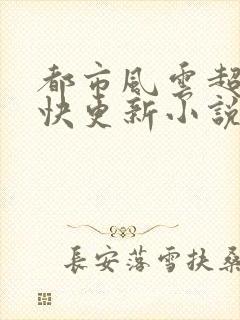 都市風雲超
快更新小說
長安落雪扶桑